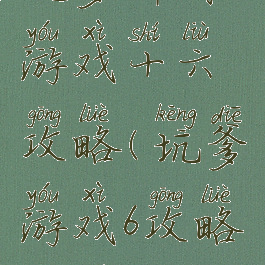 yóu xì shí liù
游戏十六
gōng lüè kēng diē
攻略(坑爹
yóu xì gōng lüè
游戏6攻略